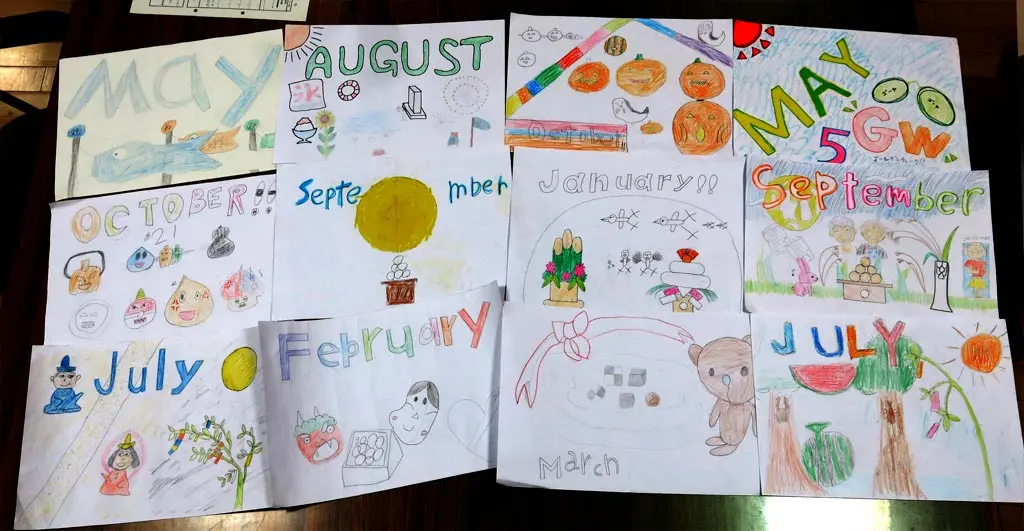 MAY
AUGUST
氷
October
MAY
5 GW
ゴールデンウィーク!!
OCTOBER!!
September
January!!
September
July
February
March
JULY